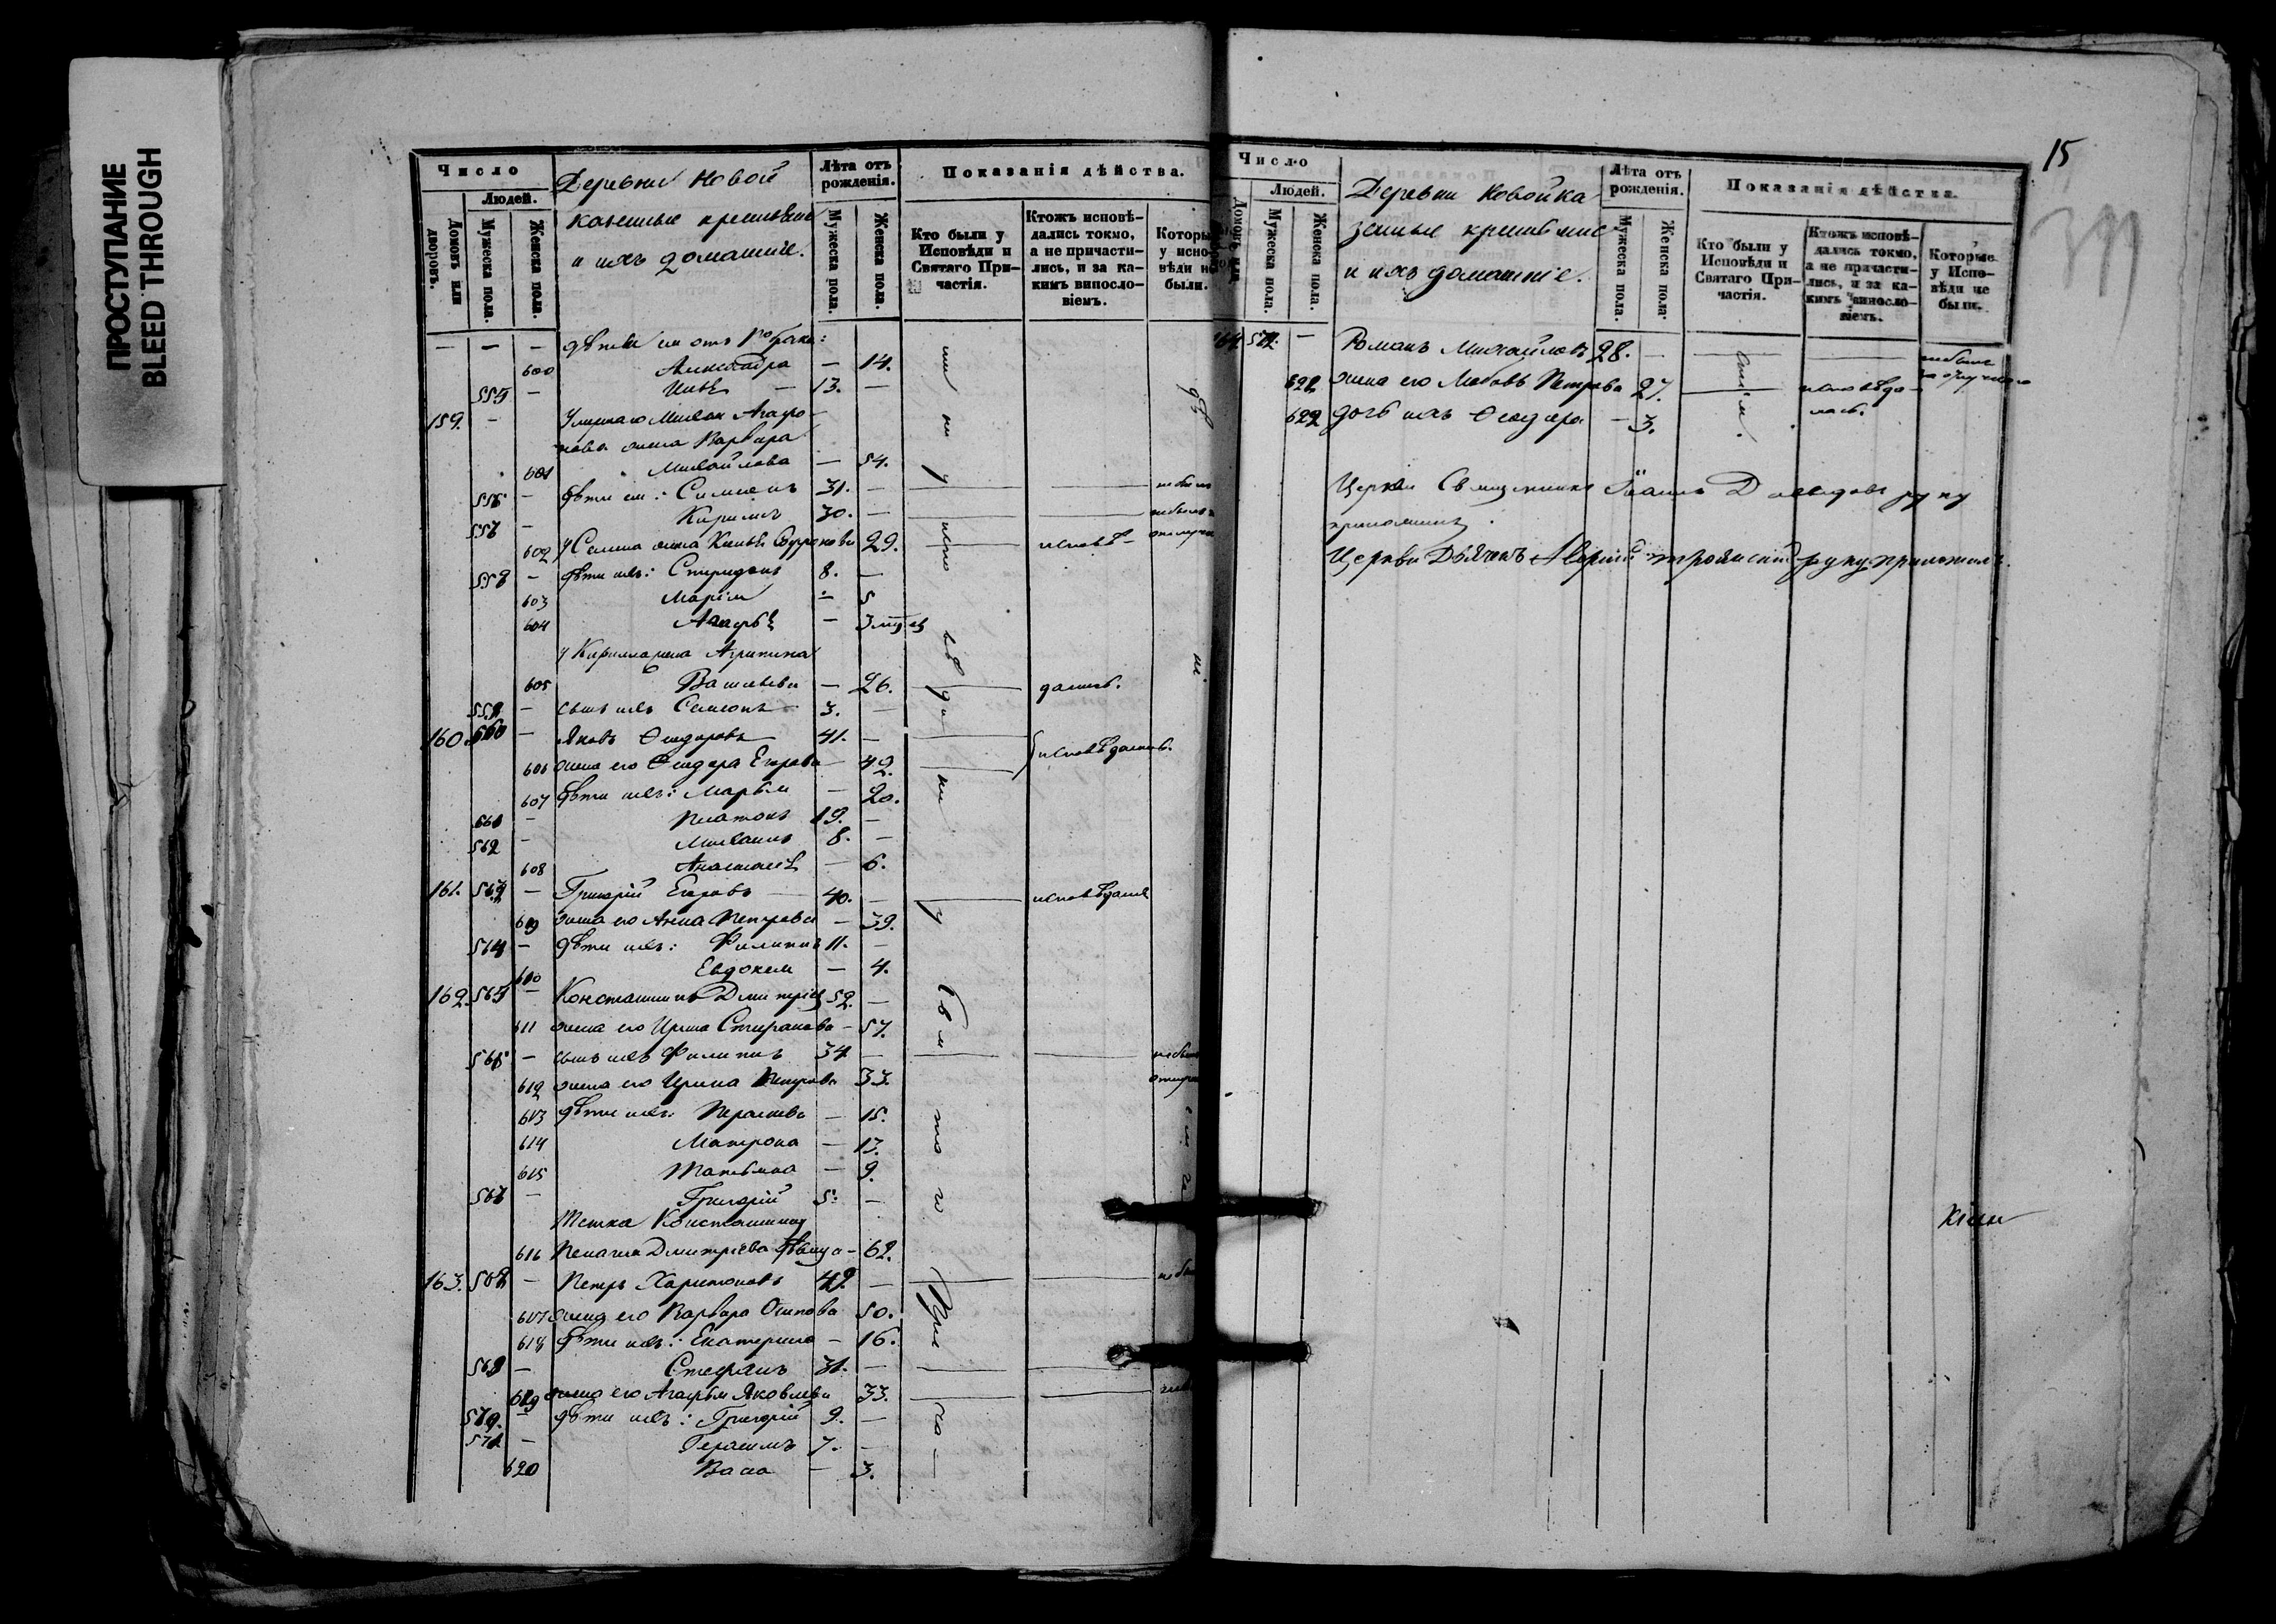 ПРОСТУПАНИЕ
BLEED THROUGH
Число
Людей.
Домовъ или дворовъ.
Мужеска пола.
Женска пола.
Деревни Новой
казенные крестьяне
и ихъ домашніе.
Лѣта отъ рожденія.
Мужеска пола.
Женска пола.
Показанія дѣйства.
Кто были у Исповѣди и Святаго Причастія.
Ктожъ исповѣдались токмо, а не причастились, и за какимъ винословіемъ.
Которы у испо- вѣди не были.
— — — дѣти ея отъ 1го брака:
600 Александра — 14.
555 — 13. —
159. — Умершаго Михаи Агафо-
нова жена Варвара
601 Михайлова — 54.
556 — дѣти ея: Симеонъ 31. —
557 — Кирилъ 30. —
602 жена 29. исповѣ-
558 — дѣти ихъ: Спиридонъ 8. —
603 Марія — 5
604 Агафья — 3 мцъ
У Кирилла жена Агрипина
605 Васильева — 26. дались.
559 — сынъ ихъ Самсонъ 3. —
160. 560 — Яковъ Ѳедоровъ 41. —
606 жена его Ѳедора Егорова — 42. исповѣдались.
607 дѣти ихъ: Марья — 20.
561 — Платонъ 19. —
562 — Михаилъ 8. —
608 Анастасія — 6.
161. 563 — Григорій Егоровъ 40. — исповѣдался
609 жена его Анна Петрова — 39.
564 — дѣти ихъ: Филиппъ 11. —
610 Евдокея — 4.
162. 565 — Константинъ Дмитріевъ 52. —
611 жена его Ирина Стефанова — 57.
566 — сынъ ихъ Филиппъ 34 —
612 жена его Ирина Петрова 33.
613 дѣти ихъ: Параскева — 15.
614 Матрона — 13.
615 Татьяна — 9.
567 — Григорій 5. —
Тетка Константина
616 Пелагія Дмитріева дѣвица — 62.
163. 568 — Петръ Харитоновъ 49. —
617 жена его Варвара Осипова 50.
618 дѣти ихъ: Екатерина — 16.
569 — Стефанъ 31. —
619 жена его Агафья Яковлева 33.
570. — дѣти ихъ: Григорій 9. —
571 — Герасимъ 7. —
620 Васса — 3.
15
Число
Людей.
Мужеска пола.
Женска пола.
Деревни Новой ка-
зенные крестьяне
и ихъ домашніе.
Лѣта отъ рожденія.
Мужеска пола.
Женска пола.
Показанія дѣйства.
Кто были у Исповѣди и Святаго Причастія.
Ктожъ исповѣдались токмо, а не причастились, и за какимъ винословіемъ.
Которые у Исповѣди не были.
164 572. — Романъ Михайловъ 28. —
621 жена его Любовь Петрова 27. исповѣда-
лась.
622 дочь ихъ Ѳедора — 3.
Церкви Священникъ Іоаннъ Давидовъ руку
приложилъ.
Церкви Дьячокъ Аверкій Троянскій руку приложилъ.